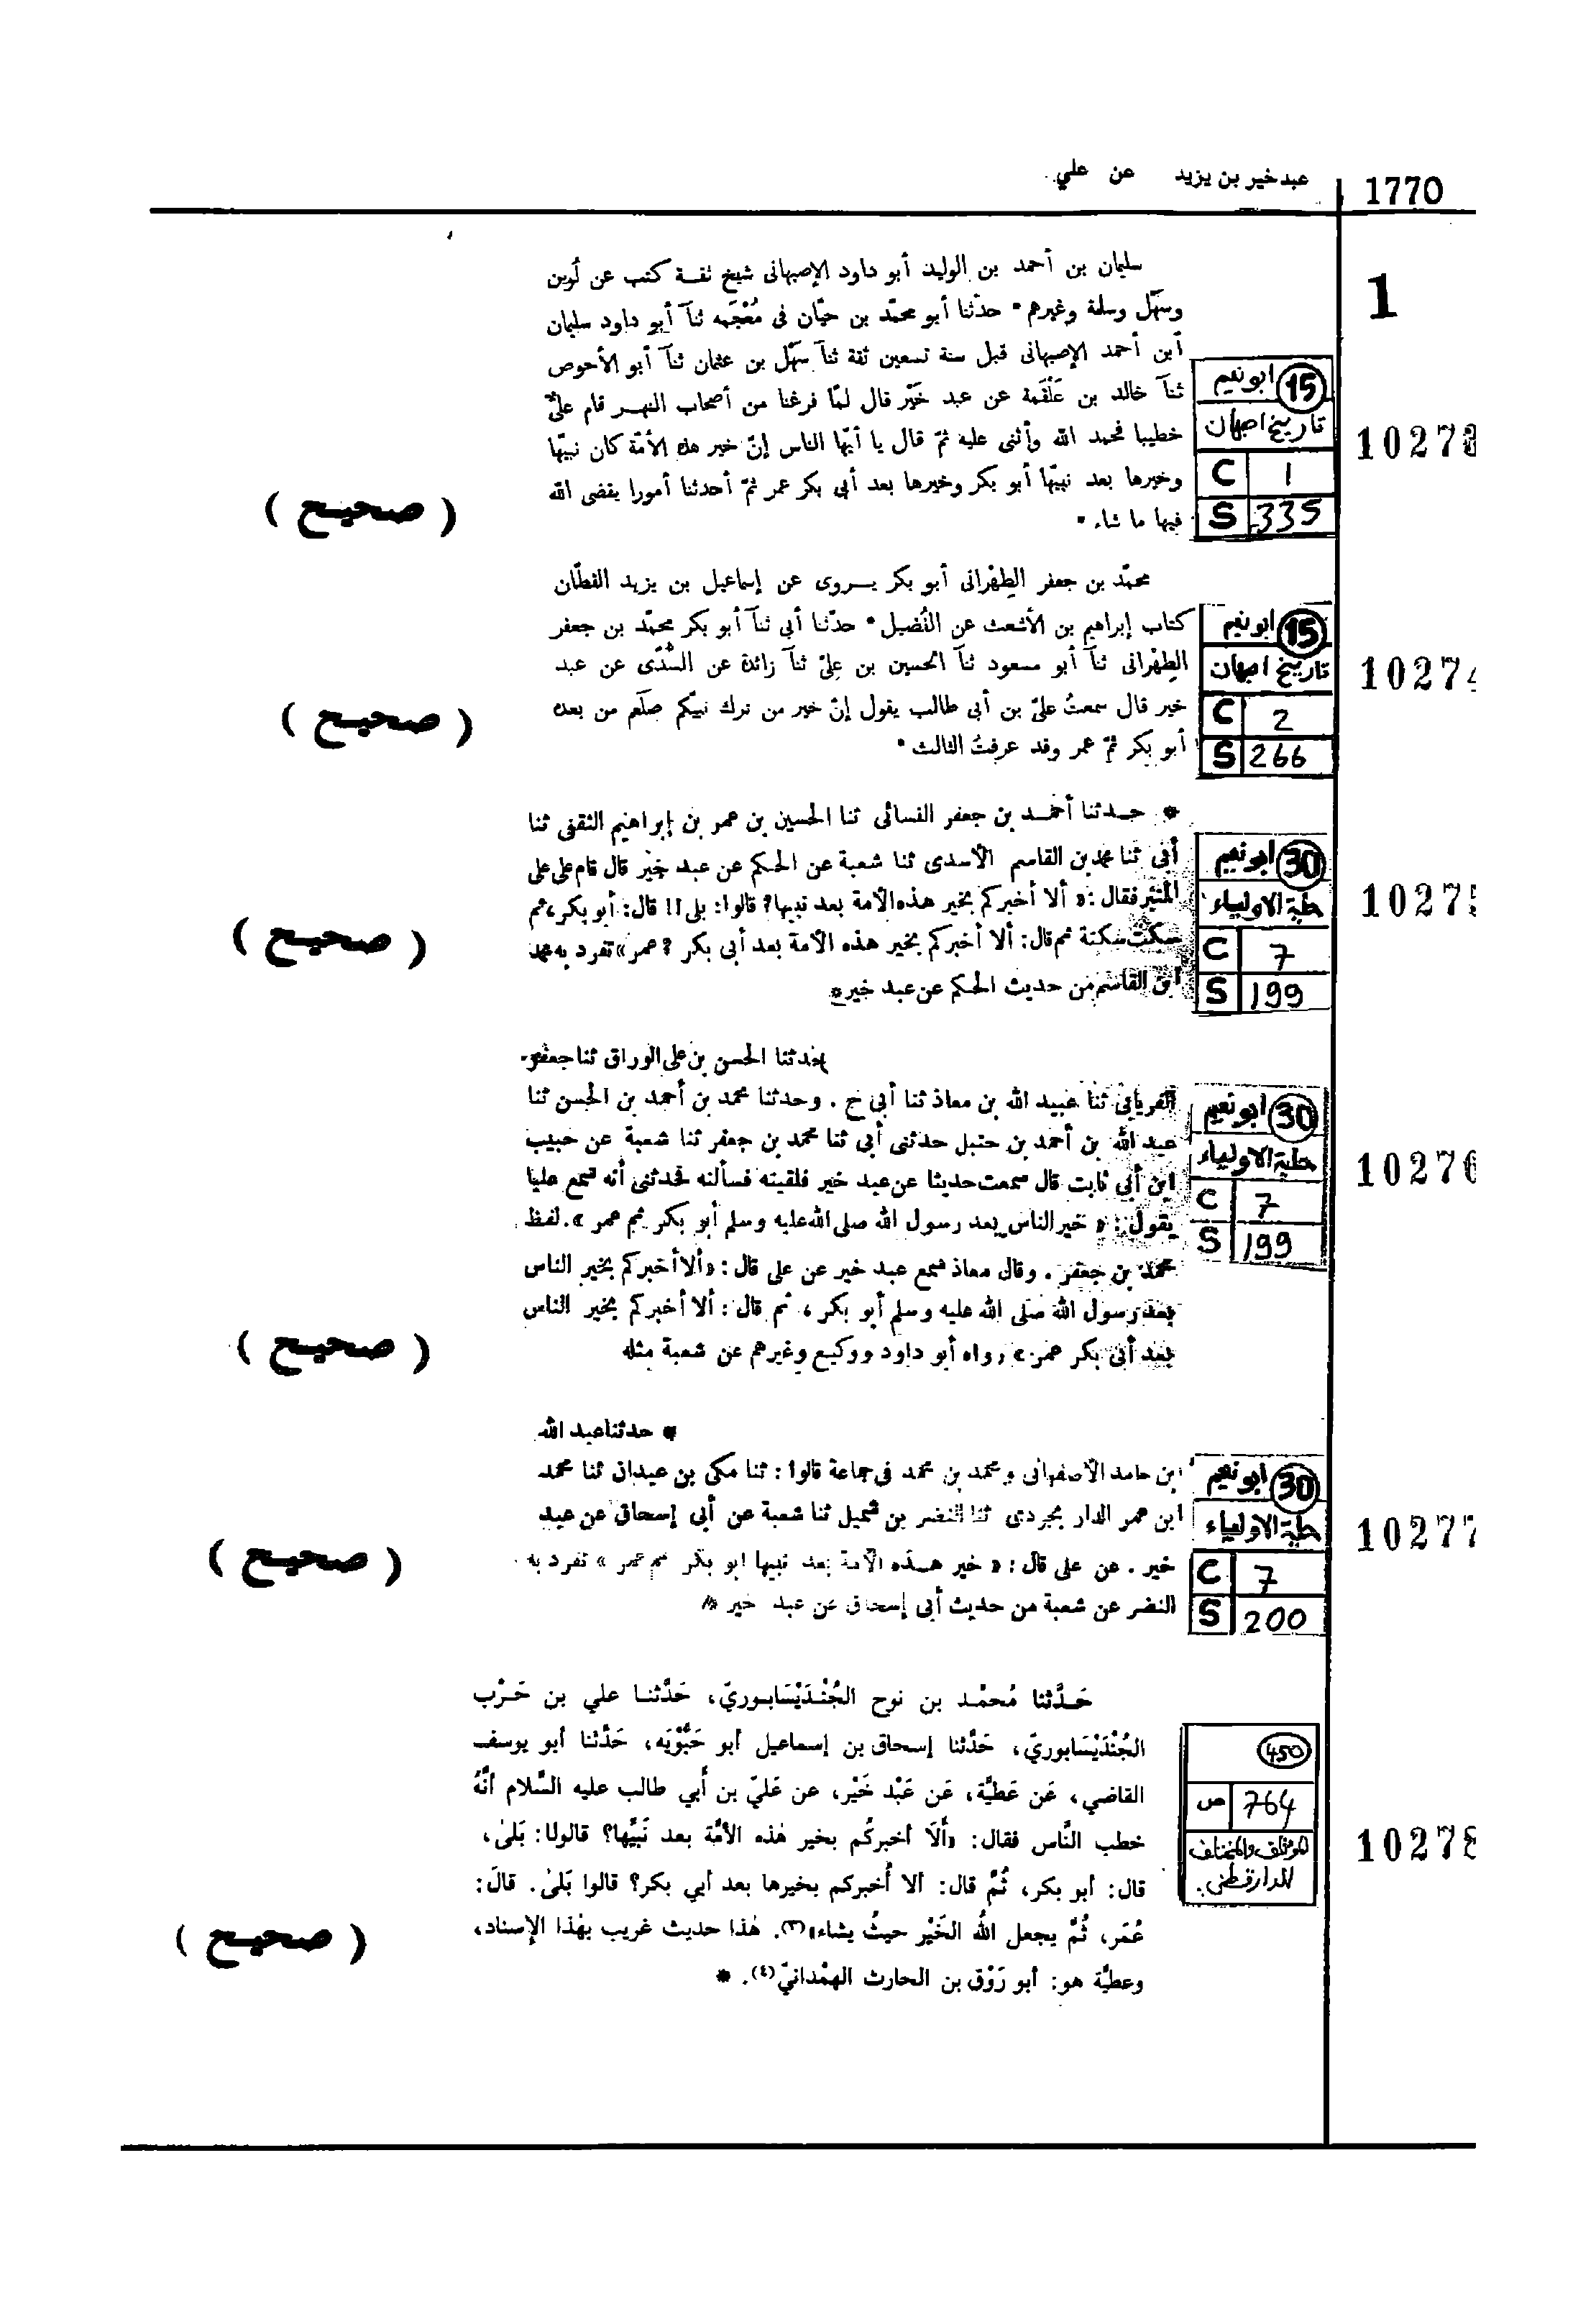 1770
عبد خير بن يزيد عن علي
1
سليمان بن أحمد بن الوليد أبو داود الإصبهانى شيخ ثقة كتب عن لُوين
وسهل وسلمة وغيرهم * حدّثنا أبو محمّد بن حيّان فى مُعْجَمه ثنآ أبو داود سليمان
أبن أحمد الإصبهانى قبل سنة تسعين ثقة ثنآ سَهْل بن عثمان ثنآ أبو الأحوص
ثنآ خالد بن عَلْقَمة عن عبد خَيْر قال لمّا فرغنا من أصحاب النهر قام علىّ
خطيبا فحمد الله وأثنى عليه ثمّ قال يا أيّها الناس إنّ خير هذه الأمّة كان نبيّها
وخيرها بعد نبيّها أبو بكر وخيرها بعد أبى بكر عمر ثمّ أحدثنا أمورا يقضى الله
فيها ما شاء *
( صحيح )
15 ابو نعيم
تاريخ اصبهان
C 1
S 335
10273
محمّد بن جعفر الطِهْرانى أبو بكر يروى عن إسماعيل بن يزيد القطّان
كتاب إبراهيم بن الأشعث عن الفُضيل * حدّثنا أبى ثنآ أبو بكر محمّد بن جعفر
الطِهْرانى ثنآ أبو مسعود ثنآ الحسين بن علىّ ثنآ زائدة عن السُّدّى عن عبد
خير قال سمعتُ علىّ بن أبى طالب يقول إنّ خير من ترك نبيّكم صلّعم من بعده
أبو بكر ثمّ عمر وقد عرفتُ الثالث *
( صحيح )
15 ابو نعيم
تاريخ اصبهان
C 2
S 266
10274
* حدثنا أحمد بن جعفر النسائى ثنا الحسين بن عمر بن إبراهيم الثقفى ثنا
أبى ثنا محمد بن القاسم الأسدى ثنا شعبة عن الحكم عن عبد خير قال قام على على
المنبر فقال : « ألا أخبركم بخير هذه الأمة بعد نبيها ? قالوا : بلى !! قال : أبو بكر ، ثم
سكت سكتة ثم قال : ألا أخبركم بخير هذه الأمة بعد أبى بكر ? عمر » تفرد به محمد
ابن القاسم من حديث الحكم عن عبد خير *
( صحيح )
30 ابو نعيم
حلية الاولياء
C 7
S 199
10275
حدثنا الحسن بن على الوراق ثنا جعفر
الفريابى ثنا عبيد الله بن معاذ ثنا أبى ح . وحدثنا محمد بن أحمد بن الحسن ثنا
عبد الله بن أحمد بن حنبل حدثنى أبى ثنا محمد بن جعفر ثنا شعبة عن حبيب
ابن أبى ثابت قال سمعت حديثا عن عبد خير فلقيته فسألته فحدثنى أنه سمع عليا
يقول : « خير الناس بعد رسول الله صلى الله عليه وسلم أبو بكر ثم عمر » . لفظ
محمد بن جعفر . وقال معاذ سمع عبد خير عن على قال : « ألا أخبركم بخير الناس
بعد رسول الله صلى الله عليه وسلم أبو بكر ، ثم قال : ألا أخبركم بخير الناس
بعد أبى بكر عمر » رواه أبو داود ووكيع وغيرهم عن شعبة مثله
( صحيح )
30 ابو نعيم
حلية الاولياء
C 7
S 199
10276
* حدثنا عبد الله
ابن حامد الأصفهانى ومحمد بن محمد فى جماعة قالوا : ثنا مكى بن عبدان ثنا محمد
ابن عمر الدار بجردى ثنا النضر بن شميل ثنا شعبة عن أبى إسحاق عن عبد
خير . عن على قال : « خير هذه الأمة بعد نبيها ابو بكر ثم عمر » تفرد به
النضر عن شعبة من حديث أبى إسحاق عن عبد خير *
( صحيح )
30 ابو نعيم
حلية الاولياء
C 7
S 200
10277
حَدَّثنا مُحمَّد بن نوح الجُنْدَيْسَابوريّ، حَدَّثنا علي بن حَرْب
الجُنْدَيْسَابوريّ، حَدَّثنا إسحاق بن إسماعيل أبو حَبُّوْيَه، حَدَّثنا أبو يوسف
القاضي، عَن عَطيَّة، عَن عَبْد خَيْر، عن عَليّ بن أبي طالب عليه السَّلام أنَّهُ
خطب النَّاس فقال: «أَلَا أخبركُم بخير هٰذه الأمَّة بعد نَبيِّها؟ قالوا: بَلىٰ،
قال: أبو بكر، ثُمَّ قال: ألا أُخبركم بخيرها بعد أبي بكر؟ قالوا بَلىٰ. قالَ:
عُمَر، ثُمَّ يجعل اللهُ الخَيْر حيثُ يشاء»(٣). هٰذا حديث غريب بهٰذا الإسناد،
وعطيَّة هو: أبو رَوْق بن الحارث الهمْدانيّ(٤). *
( صحيح )
450
ص 764
المؤتلف والمختلف
للدارقطني
10278